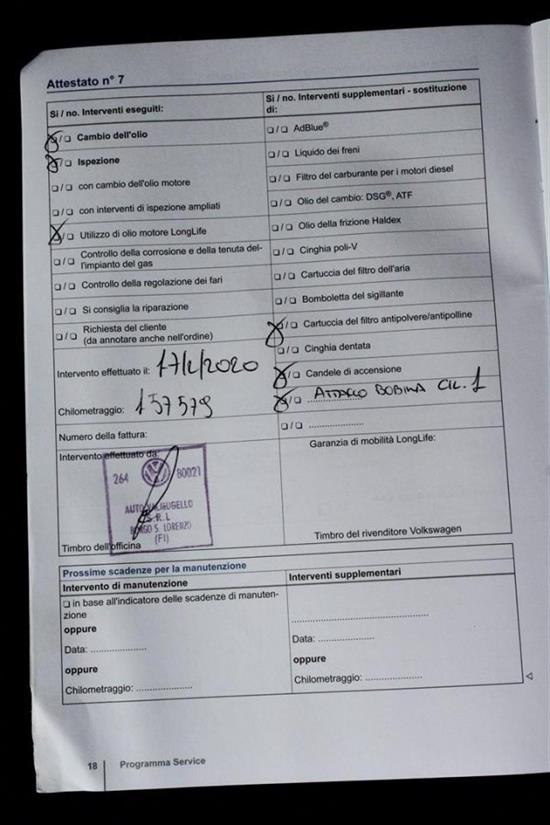 Attestato n° 7
Si / no. Interventi eseguiti:
Si / no. Interventi supplementari - sostituzione
di:
❏/❏ Cambio dell'olio
❏/❏ AdBlue®
❏/❏ Ispezione
❏/❏ Liquido dei freni
❏/❏ con cambio dell'olio motore
❏/❏ Filtro del carburante per i motori diesel
❏/❏ con interventi di ispezione ampliati
❏/❏ Olio del cambio: DSG®, ATF
❏/❏ Utilizzo di olio motore LongLife
❏/❏ Olio della frizione Haldex
❏/❏ Controllo della corrosione e della tenuta del-
l'impianto del gas
❏/❏ Cinghia poli-V
❏/❏ Controllo della regolazione dei fari
❏/❏ Cartuccia del filtro dell'aria
❏/❏ Si consiglia la riparazione
❏/❏ Bomboletta del sigillante
❏/❏ Richiesta del cliente
(da annotare anche nell'ordine)
❏/❏ Cartuccia del filtro antipolvere/antipolline
❏/❏ Cinghia dentata
Intervento effettuato il: 17/2/2020
❏/❏ Candele di accensione
Chilometraggio: 137579
❏/❏ ATTACCO BOBINA CIL. 1
❏/❏ ....................
Numero della fattura:
Garanzia di mobilità LongLife:
Intervento effettuato da:
264 B0021
S.R.L
BORGO S. LORENZO
(FI)
Timbro dell'officina
Timbro del rivenditore Volkswagen
Prossime scadenze per la manutenzione
Intervento di manutenzione
Interventi supplementari
❏ in base all'indicatore delle scadenze di manuten-
zione
oppure
Data: ....................
oppure
Chilometraggio: ....................
........................................
Data: ....................
oppure
Chilometraggio: ....................
18 Programma Service